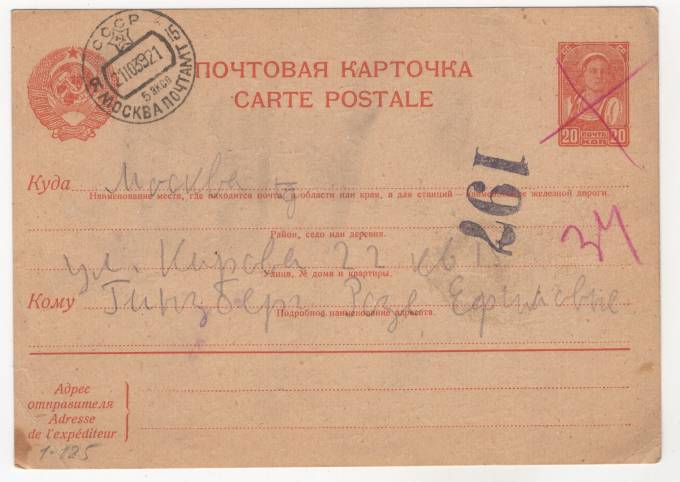 СССР
21103921
5 эксп
МОСКВА ПОЧТАМТ
ПОЧТОВАЯ КАРТОЧКА
CARTE POSTALE
20 ПОЧТА 20
КОП
197
Куда Москва
Наименование места, где находится почта, и области или края, а для станций — наименование железной дороги.
34
Район, село или деревня.
ул. Кирова 22 кв 1
Улица, № дома и квартиры.
Кому Гинзберг Розе Ефимовне
Подробное наименование адресата.
Адрес
отправителя
Adresse
de l'expéditeur
1-125